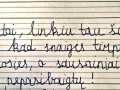 tai, linkiu tau ša
kad snaigės tirp
osies, o sausainiai
nepasibaigtų!